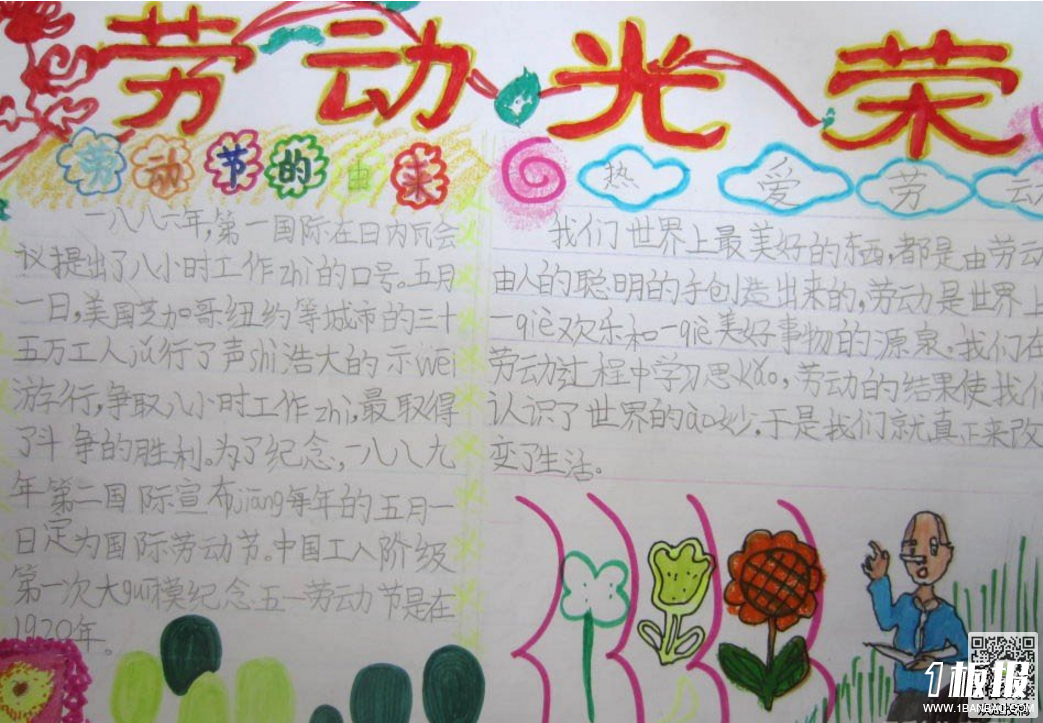 劳动光荣
劳动节的由来
一八八六年,第一国际在日内瓦会
议提出了八小时工作zhi的口号。五月
一日,美国芝加哥纽约等城市的三十
五万工人jǔ行了声shi浩大的示wei
游行,争取八小时工作zhi,最取得
了斗争的胜利。为了纪念,一八八九
年第二国际宣布jiang每年的五月一
日定为国际劳动节。中国工人阶级
第一次大gui模纪念五一劳动节是在
1920年。
热爱劳动
我们世界上最美好的东西,都是由劳动
由人的聪明的手创造出来的,劳动是世界上
一qiè欢乐和一qiè美好事物的源泉。我们在
劳动过程中学习思kǎo,劳动的结果使我们
认识了世界的ào妙.于是我们就真正来改
变了生活。
1板报
WWW.1BANBAO.COM